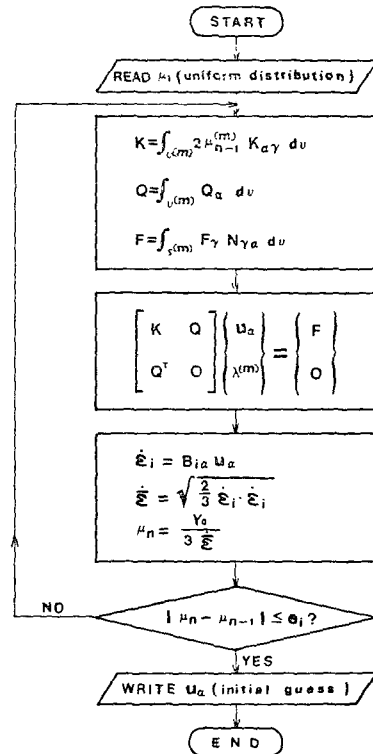 START
READ μ₁ (uniform distribution)
K=∫_{v^{(m)}} 2 μ_{n-1}^{(m)} K_{αγ} dv
Q=∫_{v^{(m)}} Q_α dv
F=∫_{s^{(m)}} F_γ N_{γα} dv
[K Q] {u_α} = {F}
[Qᵀ O] {λ^{(m)}} {O}
ε̇_i = B_{iα} u_α
ε̄̇ = √(2/3 ε̇_i · ε̇_i)
μ_n = Y₀ / 3 ε̄̇
NO
| μ_n − μ_{n-1} | ≤ e_i ?
YES
WRITE u_α (initial guess)
END